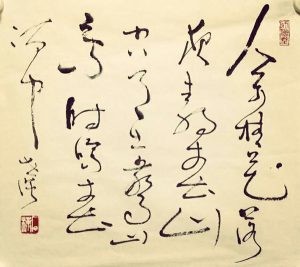 人闲桂花落
夜静春山
空月出惊山
鸟时鸣春
涧中